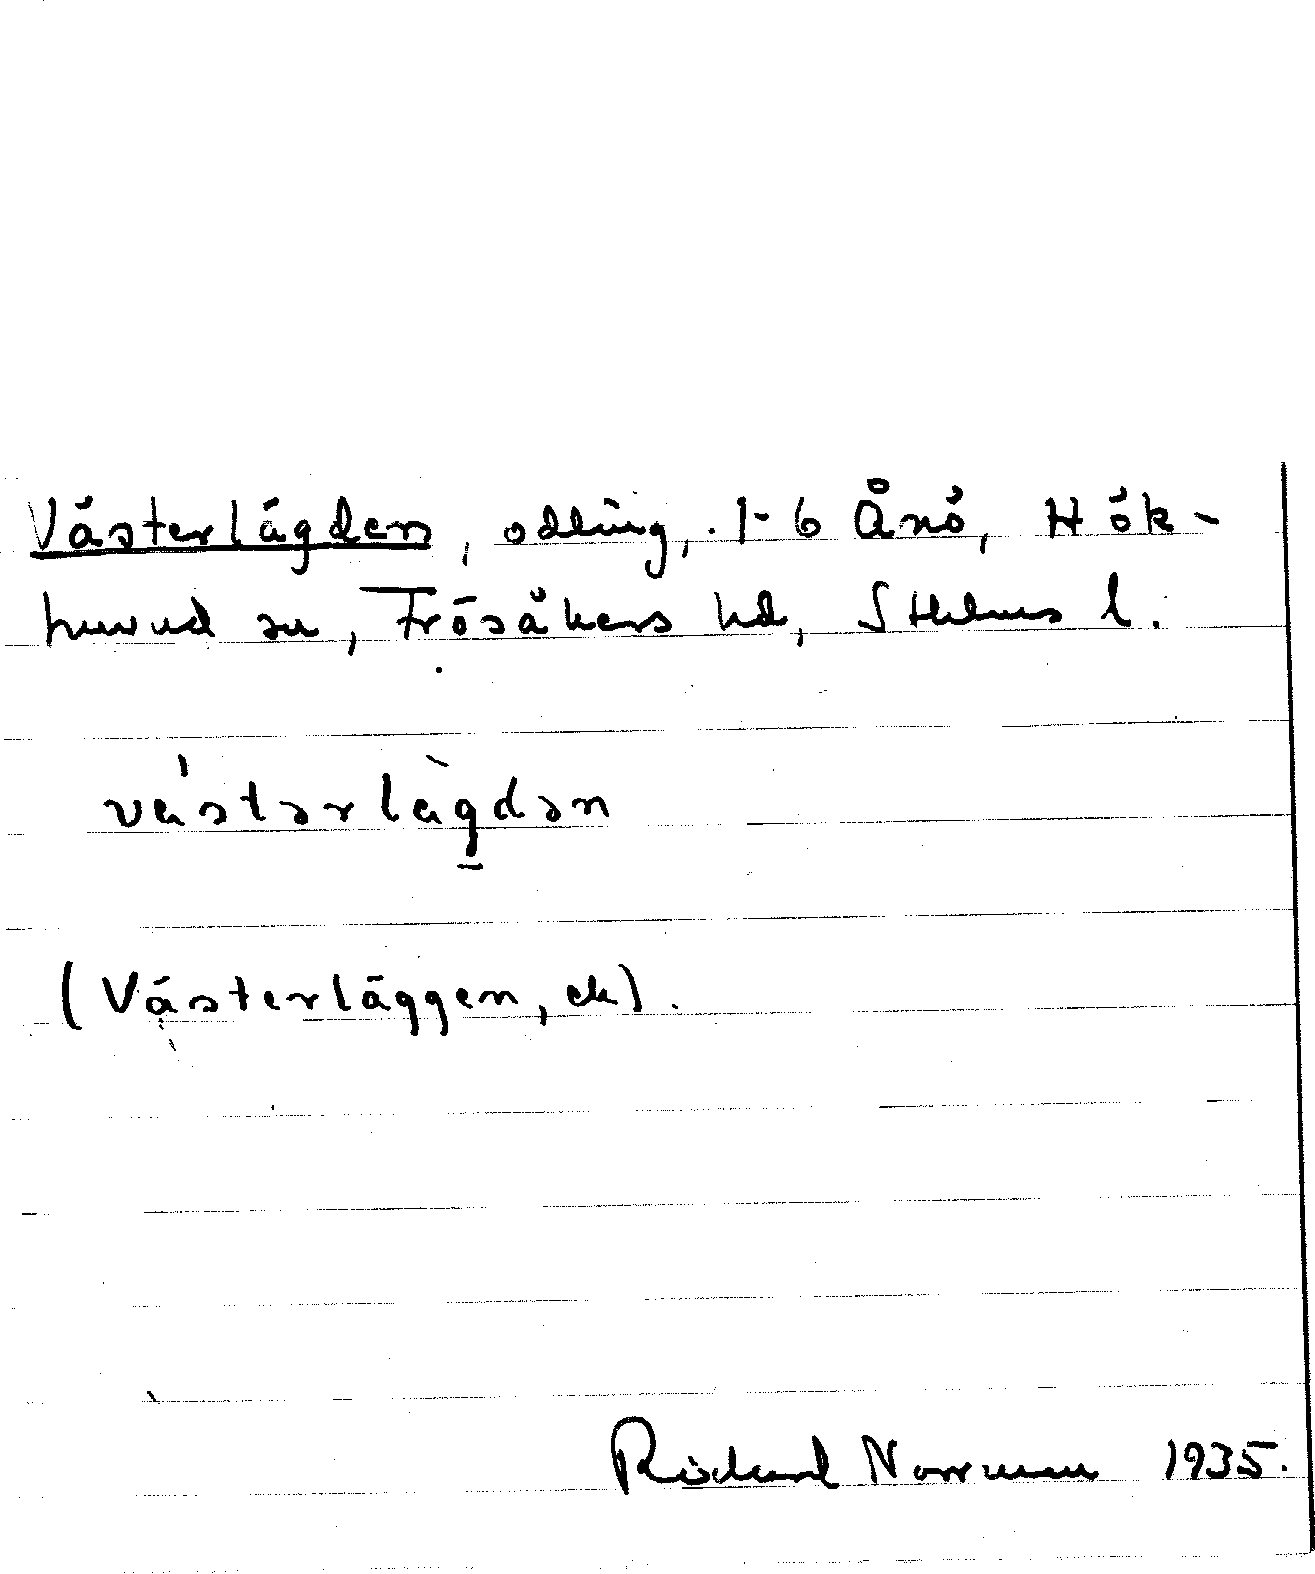 Västerlägden, odling, 1-6 Ånö, Hök-
huvud sn, Frösåkers hd, Sthlms l.
vástərlàgdən
(Västerläggen, ek).
Richard Norrman 1935.